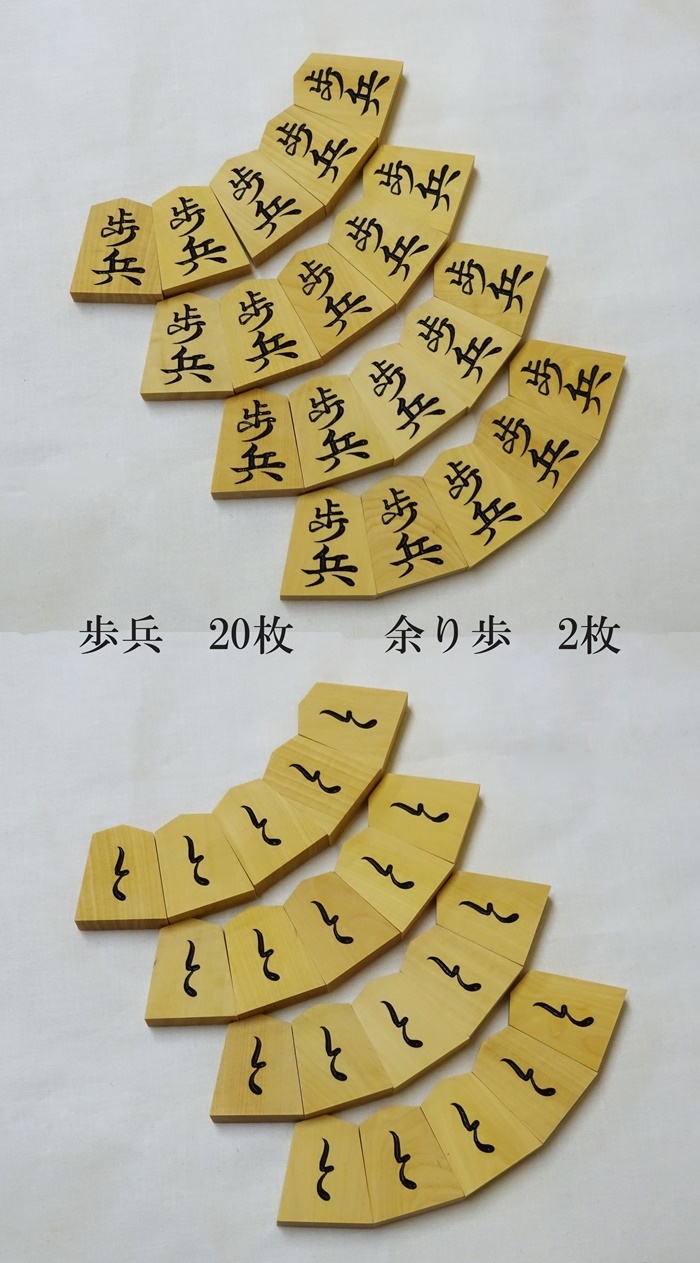 歩兵
歩兵
歩兵
歩兵
歩兵
歩兵
歩兵
歩兵
歩兵
歩兵
歩兵
歩兵
歩兵
歩兵
歩兵
歩兵
歩兵
歩兵
歩兵
歩兵
歩兵　20枚　　余り歩　2枚
と
と
と
と
と
と
と
と
と
と
と
と
と
と
と
と
と
と
と
と